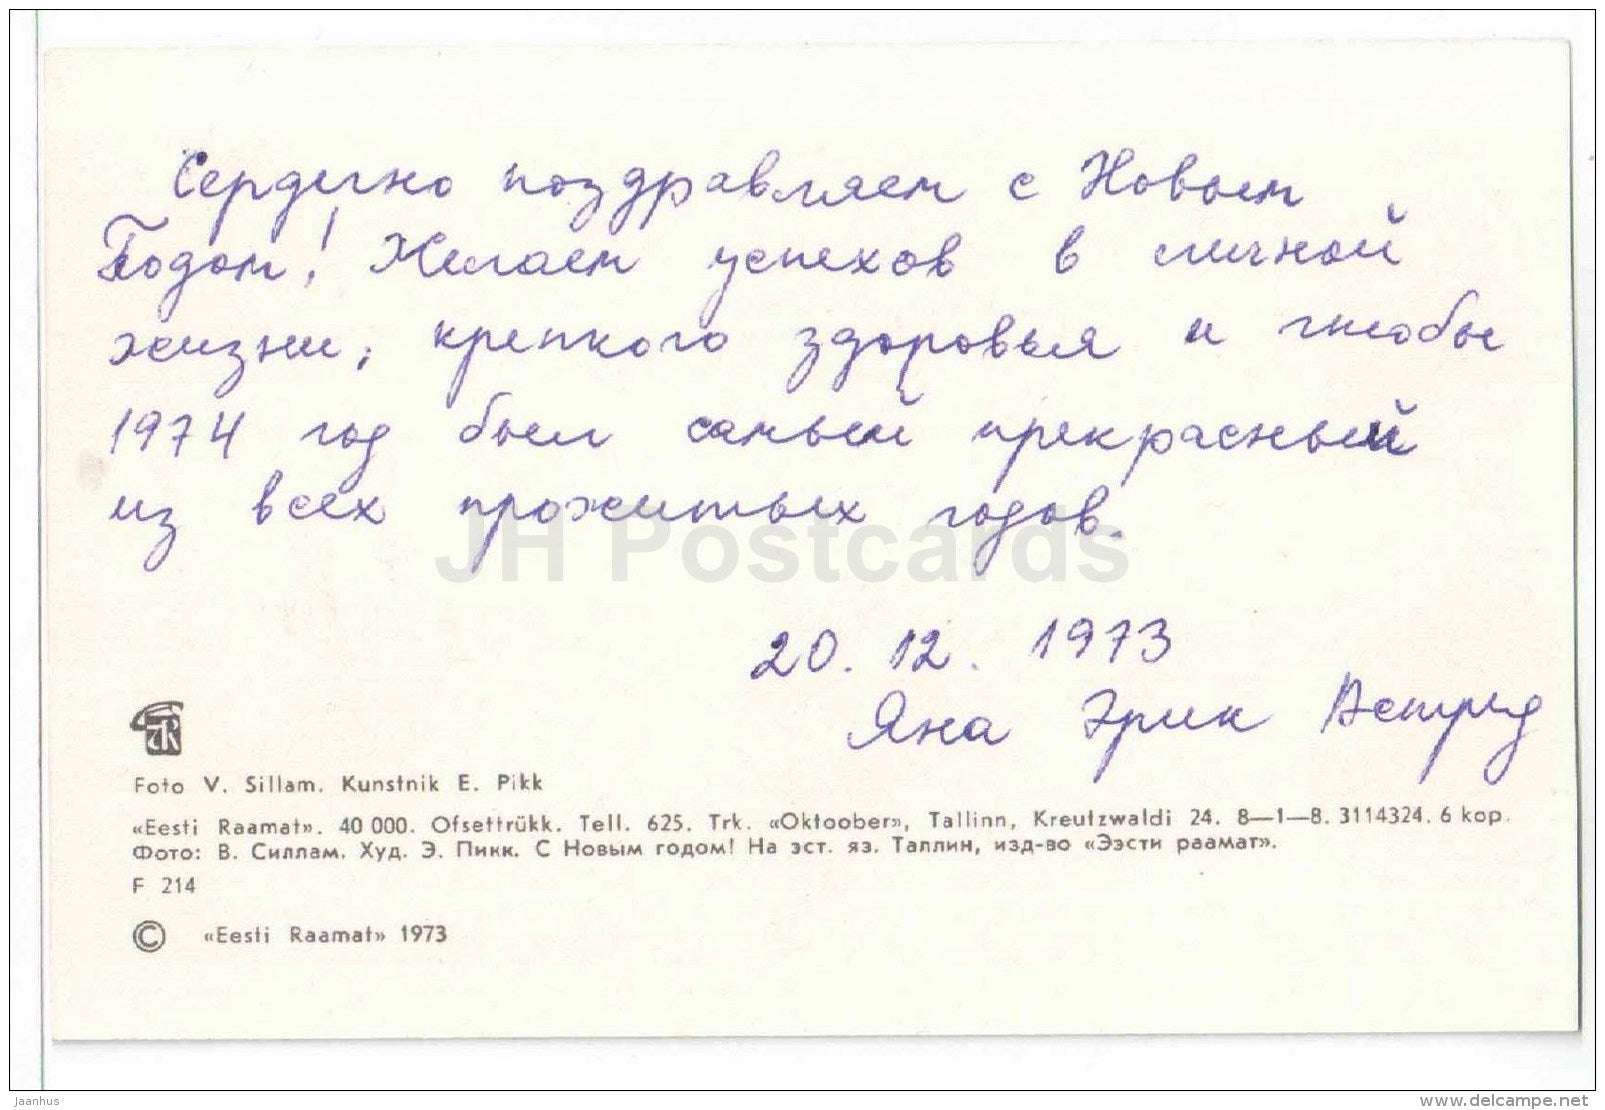 Сердечно поздравляем с Новым
Годом! Желаем успехов в личной
жизни, крепкого здоровья и чтобы
1974 год был самый прекрасный
из всех прожитых годов.
JH Postcards
20. 12. 1973
Яна Эрик Астрид
ER
Foto V. Sillam. Kunstnik E. Pikk
«Eesti Raamat». 40 000. Ofsettrükk. Tell. 625. Trk. «Oktoober», Tallinn, Kreutzwaldi 24. 8—1—8. 3114324. 6 kop.
Фото: В. Силлам. Худ. Э. Пикк. С Новым годом! На эст. яз. Таллин, изд-во «Ээсти раамат».
F 214
© «Eesti Raamat» 1973
Jaanhus
www.delcampe.net